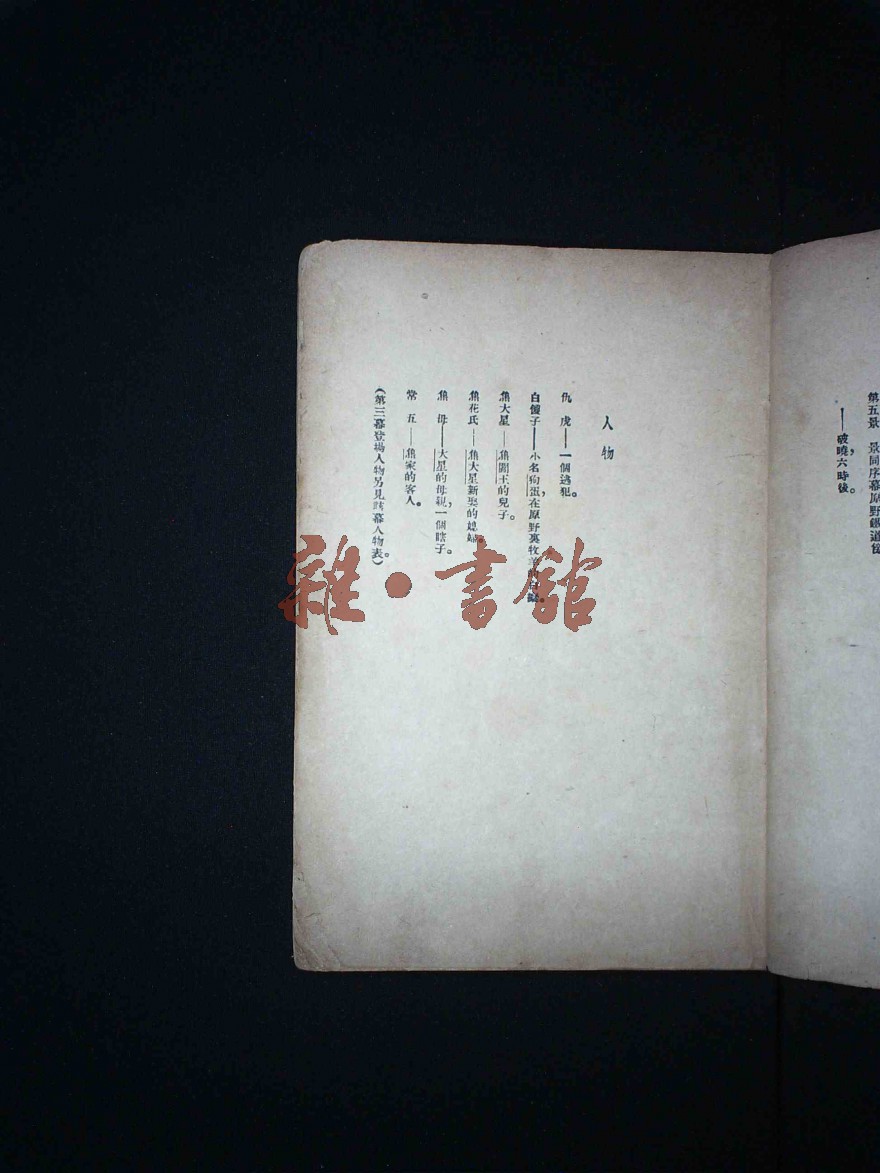 第五景 景同序幕原野鐵道傍
——破曉，六時後。
人物
仇 虎——一個逃犯。
白傻子——小名狗蛋，在原野裏牧羊的白癡。
焦大星——焦閻王的兒子。
焦花氏——焦大星新娶的媳婦。
焦 母——大星的母親，一個瞎子。
常 五——焦家的客人。
（第三幕登場人物另見該幕人物表。）
雜·書館